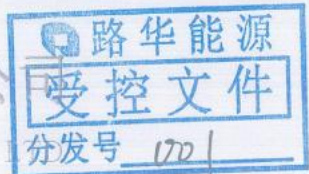 路华能源
公司
受控文件
分发号 1701